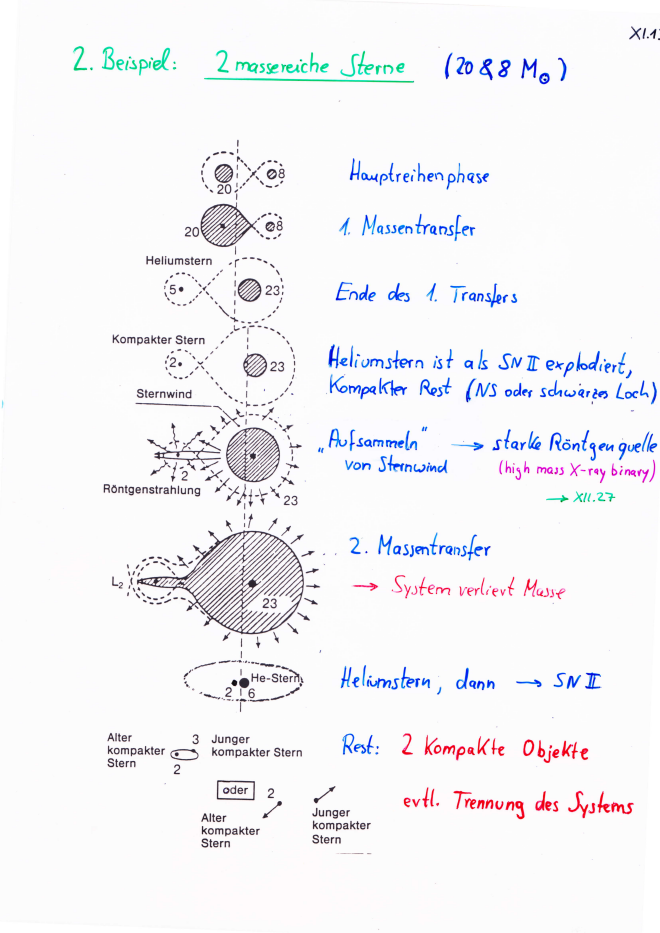 XI.1
2. Beispiel: 2 massereiche Sterne (20 & 8 M⊙)
8
20
Hauptreihenphase
20
8
1. Massentransfer
Heliumstern
5
23
Ende des 1. Transfers
Kompakter Stern
2
23
Heliumstern ist als SN II explodiert,
Kompakter Rest (NS oder schwarzes Loch)
Sternwind
„Aufsammeln" → starke Röntgenquelle
von Sternwind (high mass X-ray binary)
2
Röntgenstrahlung
23
→ XII.27
2. Massentransfer
L2
23
→ System verliert Masse
He-Stern
2 6
Heliumstern, dann → SN II
Alter
kompakter
Stern
3
2
Junger
kompakter Stern
Rest: 2 Kompakte Objekte
oder
2
Alter
kompakter
Stern
Junger
kompakter
Stern
evtl. Trennung des Systems